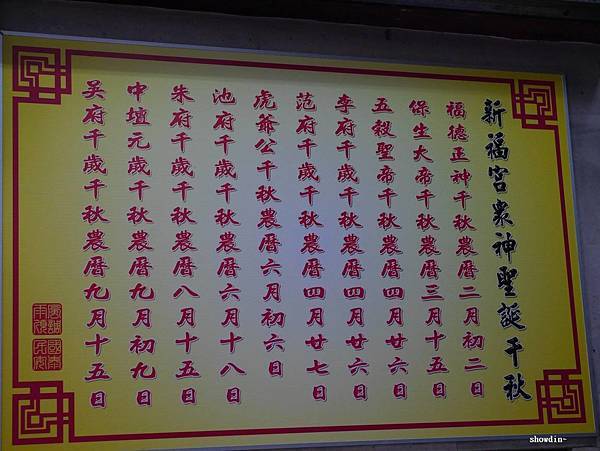 新福宮眾神聖誕千秋
福德正神千秋農曆二月初二日
保生大帝千秋農曆三月十五日
五穀聖帝千秋農曆四月廿六日
李府千歲千秋農曆四月廿六日
范府千歲千秋農曆四月廿七日
虎爺公千秋農曆六月初六日
池府千歲千秋農曆六月十八日
朱府千歲千秋農曆八月十五日
中壇元歲千秋農曆九月初九日
吳府千歲千秋農曆九月十五日
風調雨順
國泰民安
showdin~